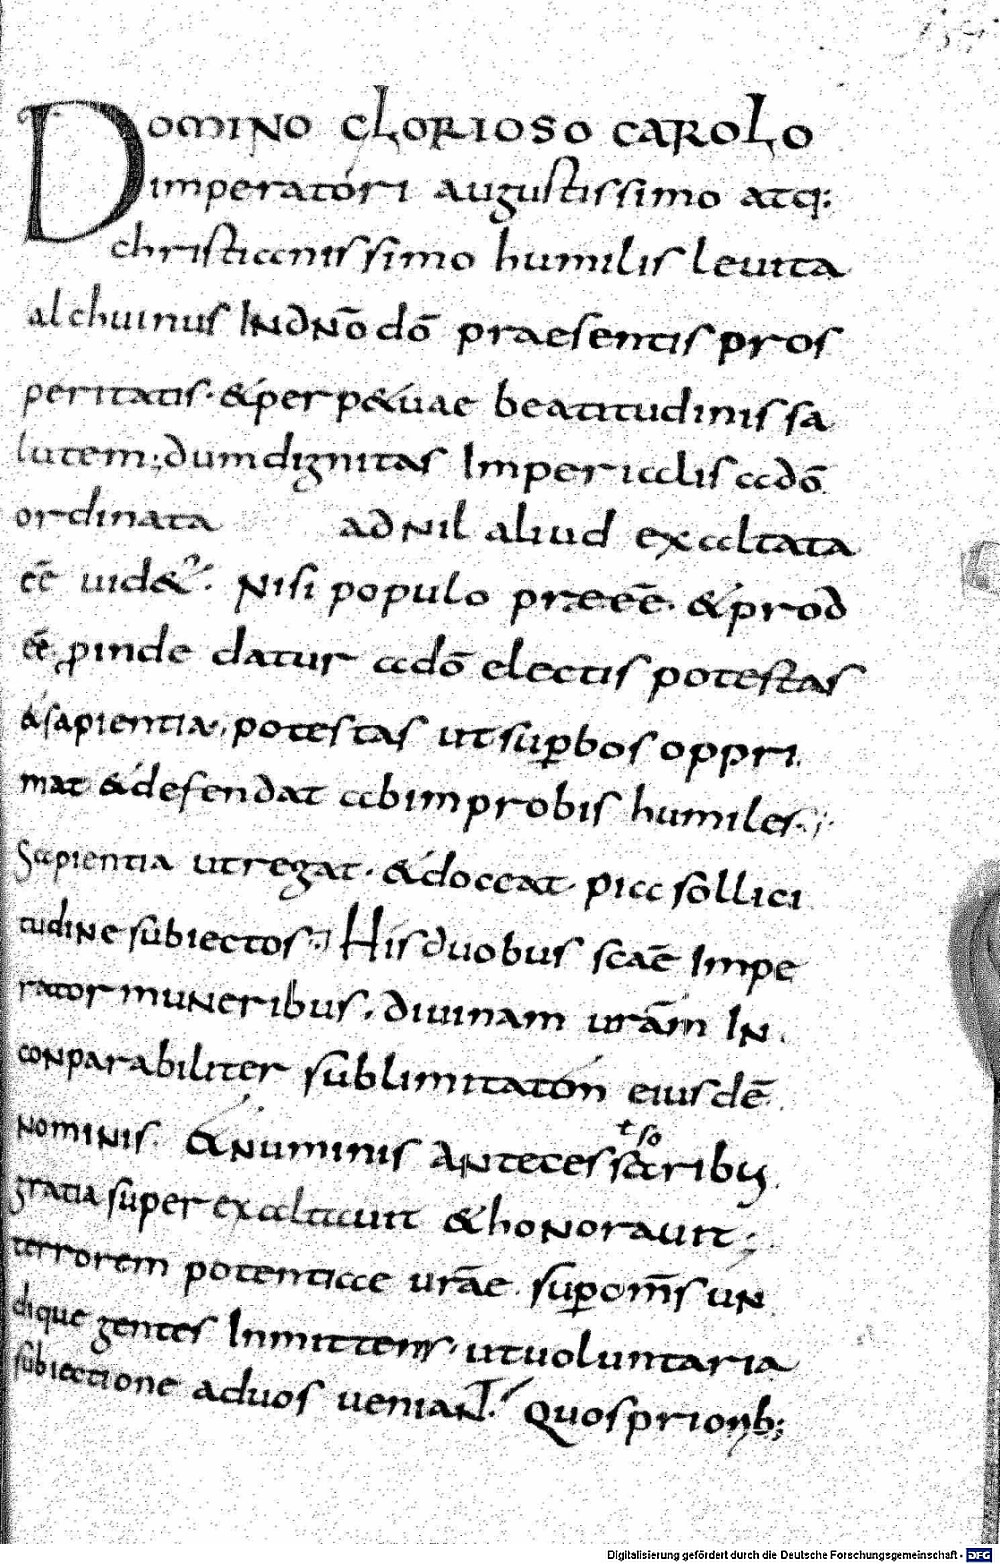 DOMINO GLORIOSO CAROLO
imperatori augustissimo atq;
christianissimo humilis leuita
alchuinus IN dNō dō praesentis pros
peritatis· & perp&uae beatitudinis sa
lutem; dum dignitas Imperialis a dō
ordinata ad Nil aliud exaltata
eē uid&ur· Nisi populo preeē· & prod
eē proinde datur a dō electis potestas
& sapientia· potestas ut suꝑbos oppri
mat & defendat ab improbis humiles·;
Sapientia ut regat· & doceat· pia sollici
tudine subiectos·; His duobus scāe Impe
rator muNeribus· diuinam urām IN
coNparabiliter sublimitatem eiusdē
NomiNis· & Numinis ANtecessoribus
gratia super exaltauit & hoNorauit;
terrorem potentiae urāe· suꝑ om̄s uN
dique gentes Inmittens· ut uoluntaria
subiectione ad uos ueniaNT· Quos priorib;
Digitalisierung gefördert durch die Deutsche Forschungsgemeinschaft - DFG